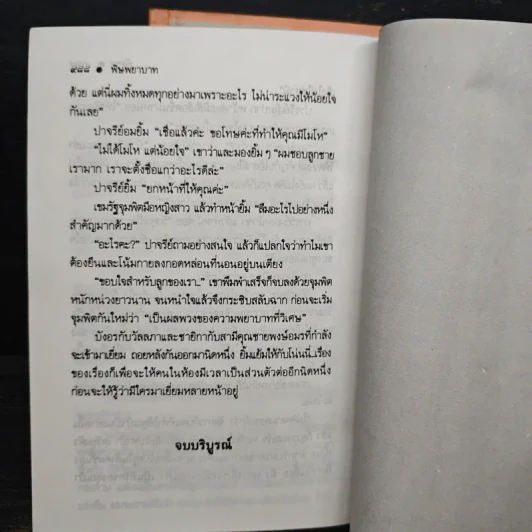 ๙๘๘ ● พิษพยาบาท
ด้วย แต่นี่ผมทิ้งหมดทุกอย่างมาเพราะอะไร ไม่น่าระแวงให้น้อยใจ
กันเลย”
ปาจรีย์อมยิ้ม “เชื่อแล้วค่ะ ขอโทษค่ะที่ทำให้คุณมีโมโห”
“ไม่ได้โมโห แต่น้อยใจ” เขาว่าและมองยิ้มๆ “ผมชอบลูกชาย
เรามาก เราจะตั้งชื่อแกว่าอะไรดีล่ะ”
ปาจรีย์ยิ้ม “ยกหน้าที่ให้คุณค่ะ”
เขมรัฐจุมพิตมือหญิงสาว แล้วทำหน้ายิ้ม “ลืมอะไรไปอย่างหนึ่ง
สำคัญมากด้วย”
“อะไรคะ?” ปาจรีย์ถามอย่างสนใจ แล้วก็แปลกใจว่าทำไมเขา
ต้องยืนและโน้มกายลงกอดหล่อนที่นอนอยู่บนเตียง
“ขอบใจสำหรับลูกของเรา..” เขาพึมพำเสร็จก็จบลงด้วยจุมพิต
หนักหน่วงยาวนาน จนหนำใจแล้วจึงกระซิบสลับฉาก ก่อนจะเริ่ม
จุมพิตกันใหม่ว่า “เป็นผลพวงของความพยาบาทที่วิเศษ”
บังอรกับวัลลภาและชายิกากับสามีคุณชายพงษ์อมรที่กำลัง
จะเข้ามาเยี่ยม ถอยหลังกันออกมานิดหนึ่ง ยิ้มแย้มให้กับโน่นนี่..เรื่อง
ของเรื่องก็เพื่อจะให้คนในห้องมีเวลาเป็นส่วนตัวต่ออีกนิดหนึ่ง
ก่อนจะให้รู้ว่ามีใครมาเยี่ยมหลายหน้าอยู่
จบบริบูรณ์